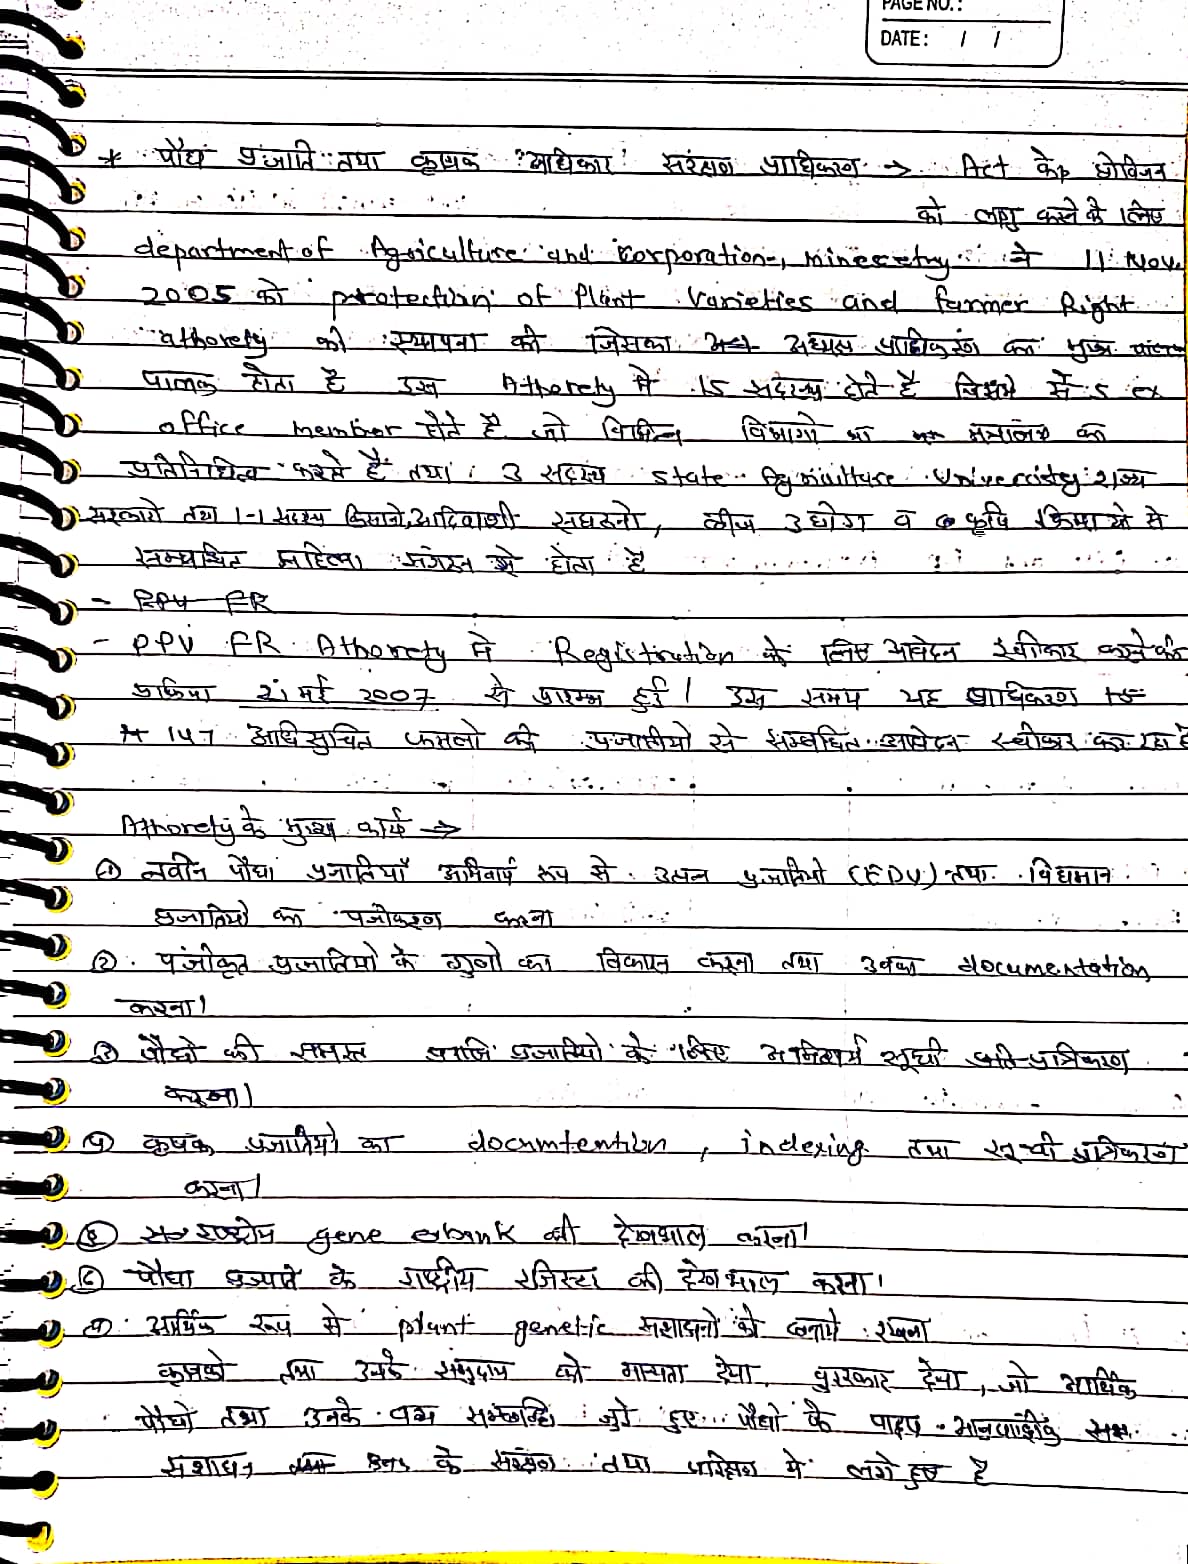 PAGE NO.:
DATE: / /
* पौध प्रजाति तथा कृषक अधिकार संरक्षण प्राधिकरण → Act के प्रोविजन
को लागु करने के लिए
department of Agriculture and Corporation, minecetry ने 11 Nov.
2005 को protection of Plant Varieties and farmer Right
athorety की स्थापना की जिसका अध्यक्ष प्राधिकरण का मुख्य
पालक होता है उस Athorety में 15 सदस्य होते है जिसमे से 5 ex
office member होते है जो विभिन्न विभागो या मंत्रालय का
प्रतिनिधित्व करते हैं तथा 3 सदस्य state Agriculture University राज्य
सरकारो तथा 1-1 सदस्य किसानो, आदिवाशी सघठनो, बीज उद्योग व कृषि क्रियाओ से
सम्बधित महिला संगठन से होता है
- PPV FR
- PPV FR Athorety मे Registration के लिए आवेदन स्वीकार करने की
प्रक्रिया 21 मई 2007 से प्रारम्भ हुई। उस समय यह प्राधिकरण
147 अधिसुचित फसलो की प्रजातीयो से सम्बधित आवेदन स्वीकार कर रहा है
Athorety के मुख्य कार्य →
① नवीन पौधा प्रजातियाँ अनिवार्य रूप से उत्पन प्रजातियो (EDV) तथा विद्यमान
प्रजातियो का पंजीकरण करना
② पंजीकृत प्रजातियो के गुणो का विकास करना तथा उनका documentation
करना।
③ पौधो की समस्त प्रजातियो के लिए अनिवार्य सूची
करना।
④ कृषक प्रजातियो का documtention, indexing तथा सूची पत्रिकरण
करना।
⑤ राष्ट्रीय gene bank की देखभाल करना।
⑥ पौधा प्रजाति के राष्ट्रीय रजिस्टर की देखभाल करना।
⑦ आर्थिक रूप से plant genetic संशाधनो को बनाये रखना
कृषको तथा उनके समुदाय को मान्यता देना, पुरस्कार देना, जो आर्थिक
पौधो तथा उनके जुडे हुए पौधो के पादप
संशाधन के संरक्षण तथा परिरक्षण मे लगे हुए है